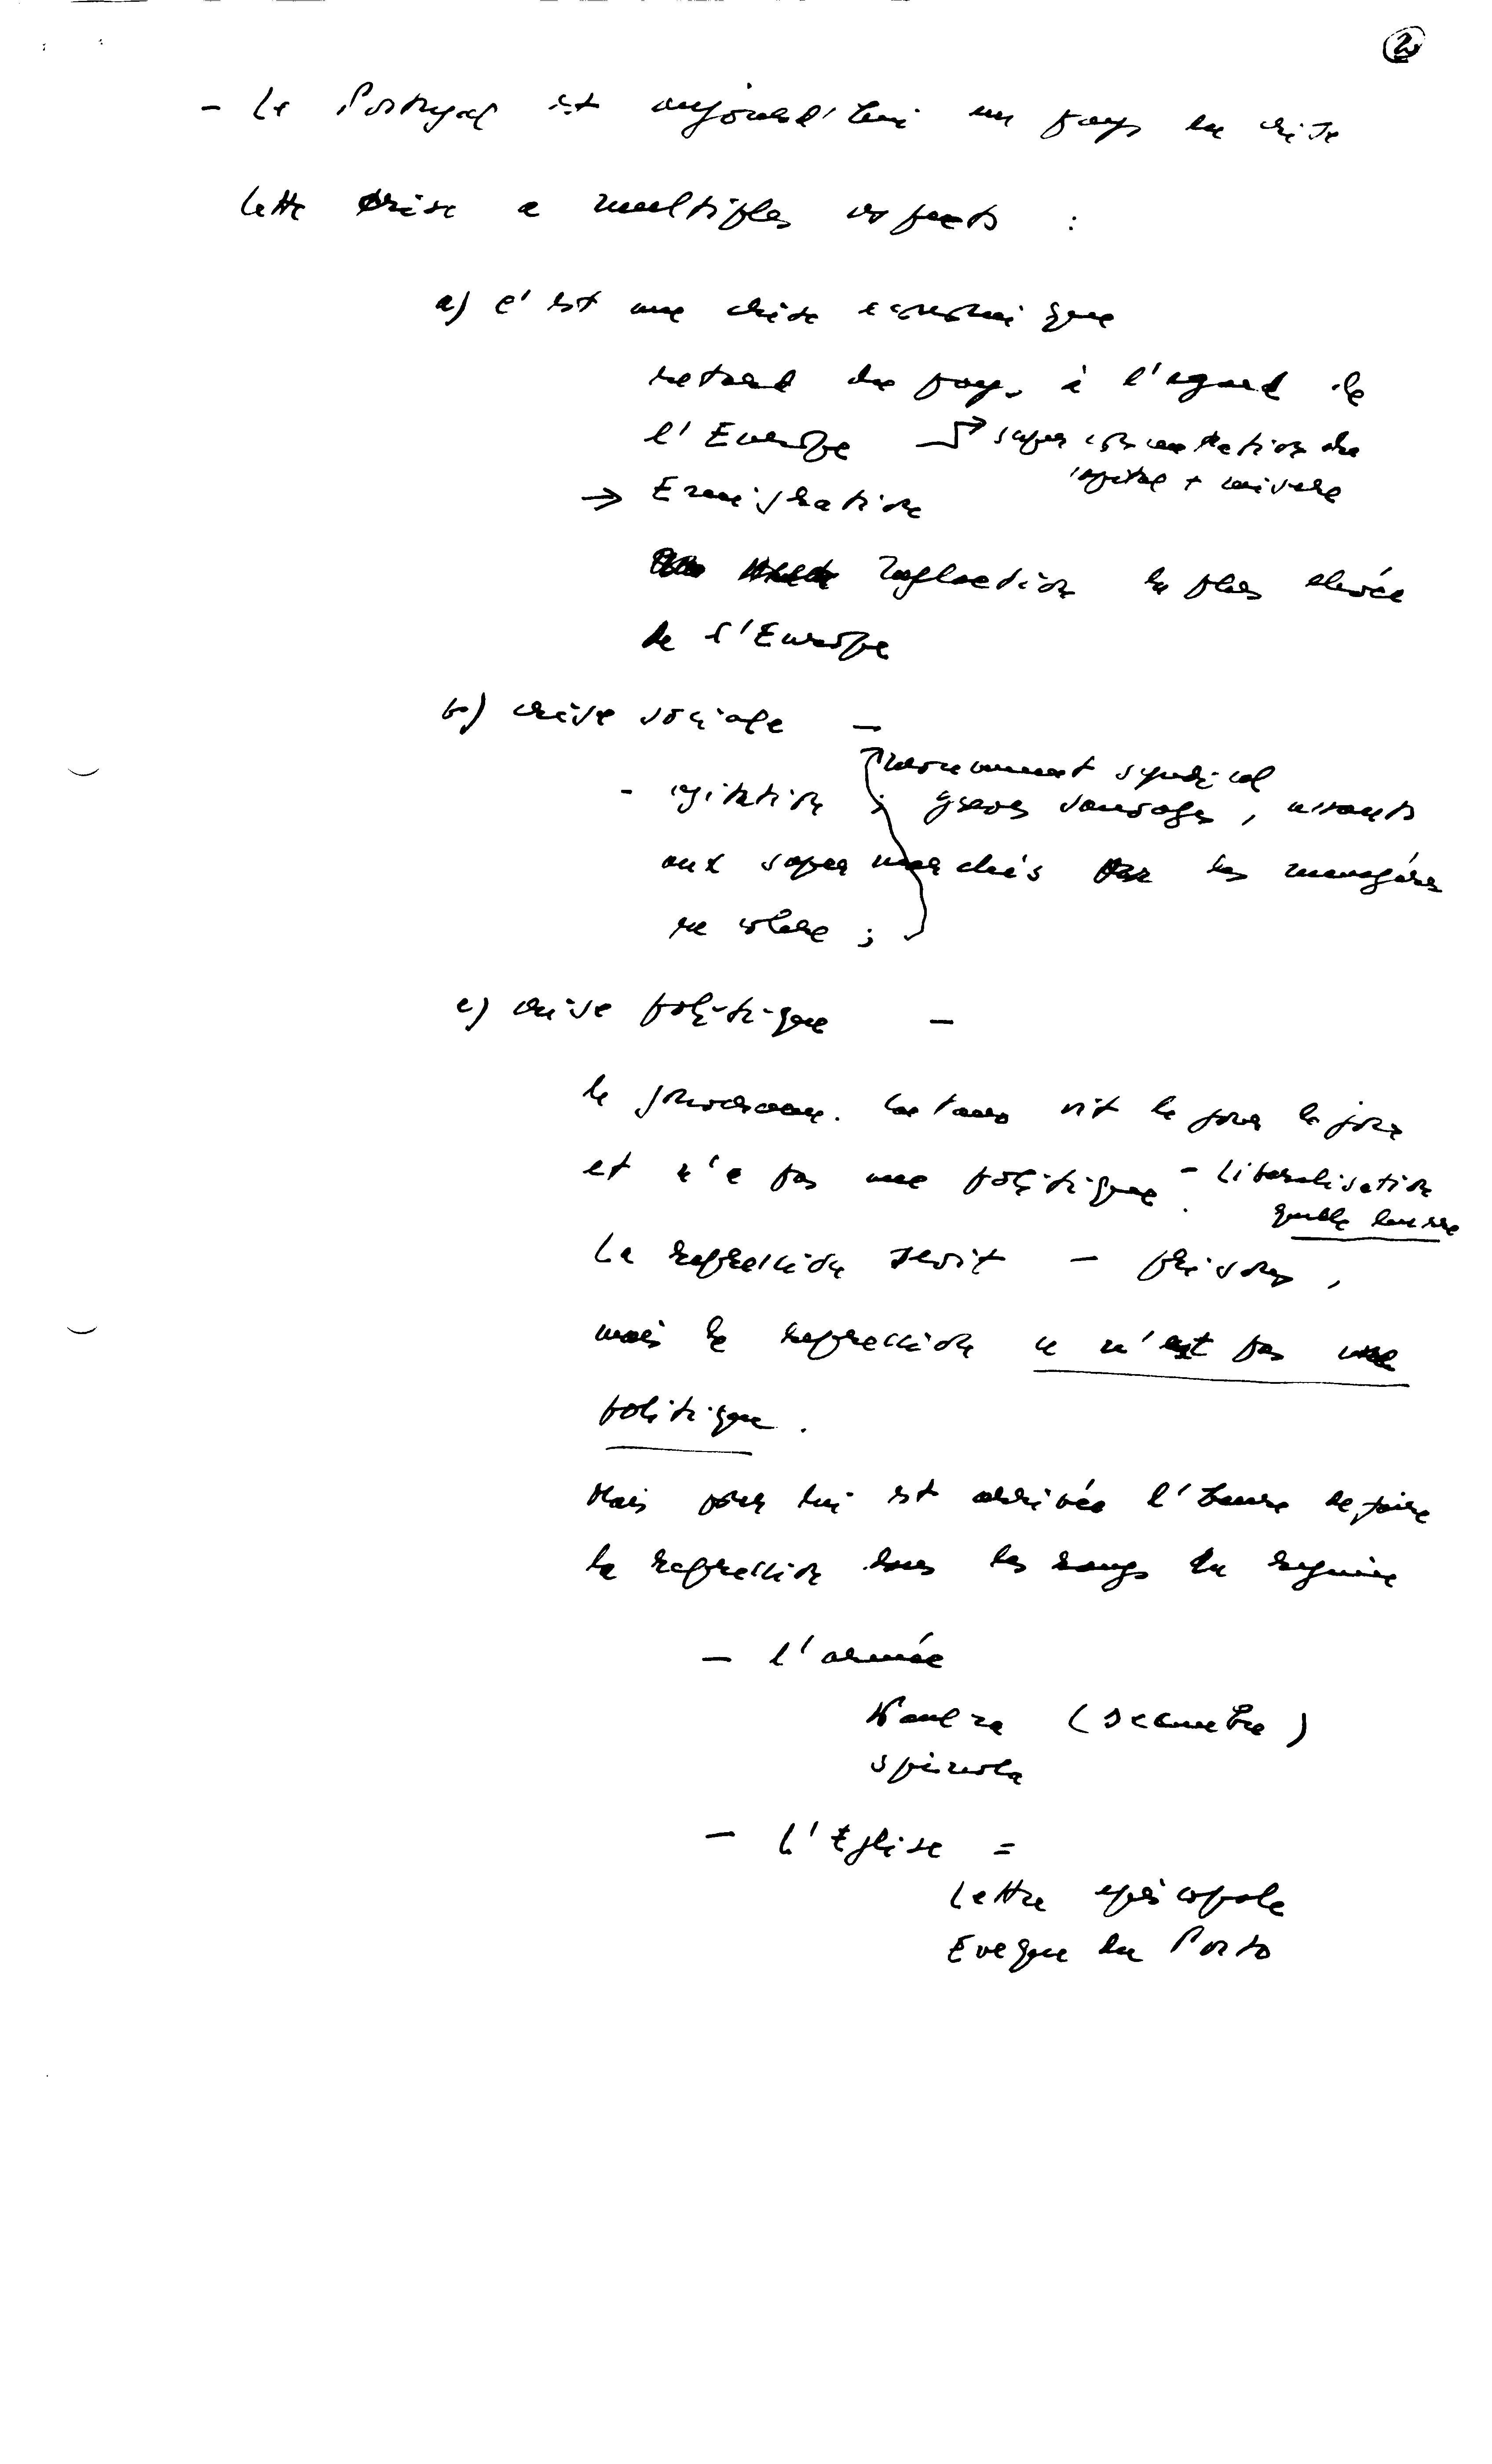 2
- Le Portugal est aujourd'hui un pays en crise
Cette crise a multiples aspects :
a) c'est une crise economique
retard du pays à l'egard de
l'Europe → super concentration du
capital + misere
→ Emigration
Inflaction la plus elevée
de l'Europe
b) crise sociale -
mouvement syndical
- agitation ; greves sauvages, assauts
aux super marchés par les menagères
en colere ;
c) crise politique -
le gouvernem. Caetano vit le jour le jour
et n'a pas une politique. - Liberalisation
quelle
La repression sevit - prisons,
mais la repression ce n'est pas une
politique.
Mais pour lui est arrivée l'heure de faire
la repression dans les rangs du regime
- l'armée
Kaulza (Decembre)
Spinola
- L'Eglise =
Lettre episcopale
Eveque du Porto